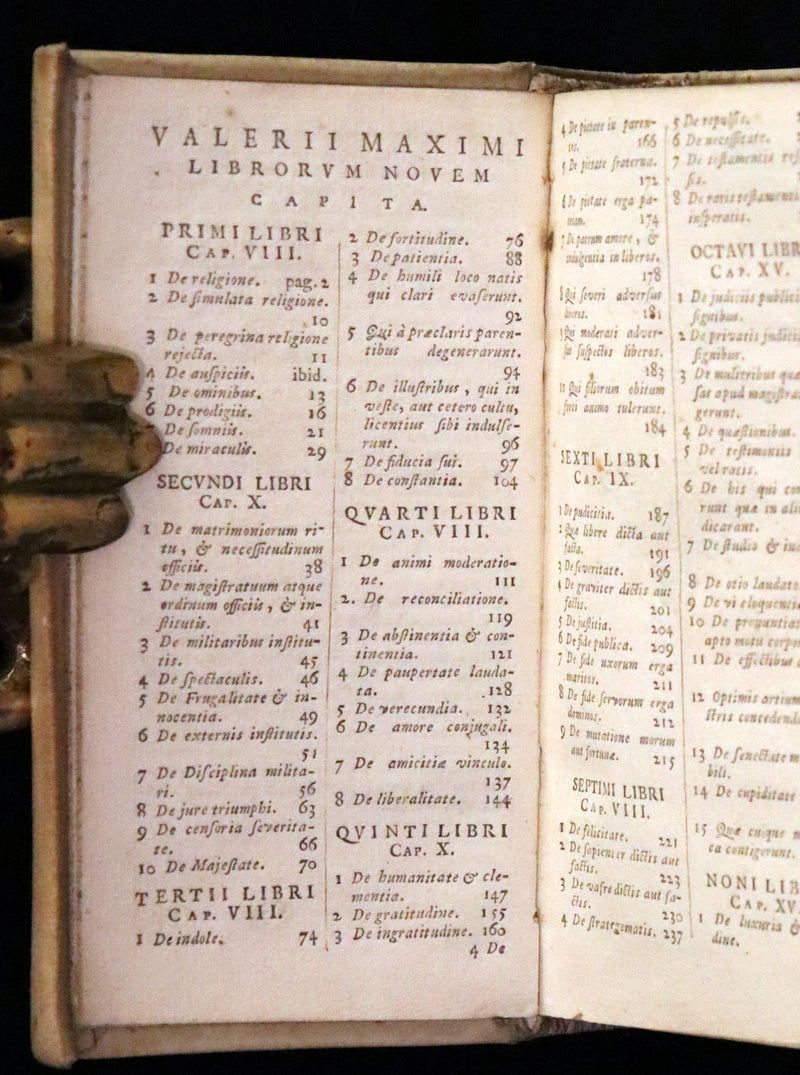 VALERII MAXIMI
LIBRORVM NOVEM
CAPITA.
PRIMI LIBRI
CAP. VIII.
1 De religione. pag. 2
2 De ſimulata religione.
10
3 De peregrina religione
rejecta. 11
4 De auſpiciis. ibid.
5 De ominibus. 13
6 De prodigiis. 16
7 De ſomniis. 21
De miraculis. 29
SECVNDI LIBRI
CAP. X.
1 De matrimoniorum ri-
tu, & neceſſitudinum
officiis. 38
2 De magiſtratuum atque
ordinum officiis, & in-
ſtitutis. 41
3 De militaribus inſtitu-
tis. 45
4 De ſpectaculis. 46
5 De Frugalitate & in-
nocentia. 49
6 De externis inſtitutis.
51
7 De Diſciplina milita-
ri. 56
8 De jure triumphi. 63
9 De cenſoria ſeverita-
te. 66
10 De Majeſtate. 70
TERTII LIBRI
CAP. VIII.
1 De indole. 74
2 De fortitudine. 76
3 De patientia. 88
4 De humili loco natis
qui clari evaſerunt.
92
5 Qui à præclaris paren-
tibus degenerarunt.
94
6 De illuſtribus, qui in
veſte, aut cetero cultu,
licentius ſibi indulſe-
runt. 96
7 De fiducia ſui. 97
8 De conſtantia. 104
QVARTI LIBRI
CAP. VIII.
1 De animi moderatio-
ne. 111
2. De reconciliatione.
119
3 De abſtinentia & con-
tinentia. 121
4 De paupertate lauda-
ta. 128
5 De verecundia. 132
6 De amore conjugali.
134
7 De amicitiæ vinculo.
137
8 De liberalitate. 144
QVINTI LIBRI
CAP. X.
1 De humanitate & cle-
mentia. 147
2 De gratitudine. 155
3 De ingratitudine. 160
4 De
4 De pietate in paren-
tes. 166
5 De pietate fraterna.
172
6 De pietate erga pa-
triam. 174
7 De patrum amore, &
indulgentia in liberos.
178
8 Qui ſeveri adverſus
liberos. 181
9 Qui moderati adver-
ſus ſuſpectos liberos.
183
10 Qui filiorum obitum
forti animo tulerunt.
184
SEXTI LIBRI
CAP. IX.
1 De pudicitia. 187
2 Quæ libere dicta aut
facta. 191
3 De ſeveritate. 196
4 De graviter dictis aut
factis. 201
5 De juſtitia. 204
6 De fide publica. 209
7 De fide uxorum erga
maritos. 211
8 De fide ſervorum erga
dominos. 212
9 De mutatione morum
aut fortunæ. 215
SEPTIMI LIBRI
CAP. VIII.
1 De felicitate. 221
2 De ſapienter dictis aut
factis. 223
3 De vafre dictis aut fa-
ctis. 230
4 De ſtrategematis. 237
5 De repulſis.
6 De neceſſitate.
7 De teſtamentis reſ
ſis.
8 De ratis teſtamenti
inſperatis.
OCTAVI LIBR
CAP. XV.
1 De judiciis publici
ſignibus.
2 De privatis judici
ſignibus.
3 De mulieribus quæ
ſas apud magiſtra
gerunt.
4 De quæſtionibus.
5 De teſtimoniis
vel ratis.
6 De his qui co
runt quæ in ali
dicarant.
7 De ſtudio & in
8 De otio laudato
9 De vi eloquentiæ
10 De pronuntiat
apto motu corpor
11 De effectibus
12 Optimis artium
ſtris concedend
13 De ſenectute m
bili.
14 De cupiditate
15 Quæ cuique m
ca contigerunt.
NONI LIB
CAP. XV
1 De luxuria &
dine.